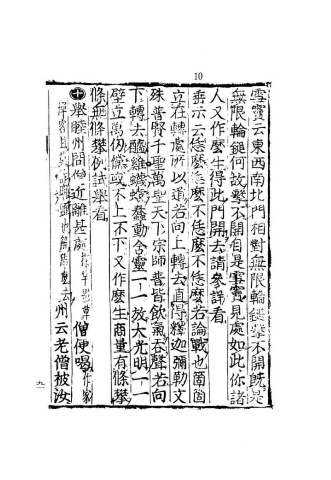 10
雪竇云東西南北門相對無限輪鎚擊不開既是
無限輪鎚何故擊不開自是雪竇見處如此你諸
人又作麼生得此門開去請參詳看
垂示云恁麼恁麼不恁麼不恁麼若論戰也箇箇
立在轉處所以道若向上轉去直得釋迦彌勒文
殊普賢千聖萬聖天下宗師普皆飲氣吞聲若向
下轉去醯雞蠛蠓蠢動含靈一一放大光明一一
壁立萬仞儻或不上不下又作麼生商量有條攀
條無條攀例試舉看
十舉睦州問僧近離甚處探竿影草僧便喝作家
禪客且莫詐明頭也解恁麼去州云老僧被汝
九